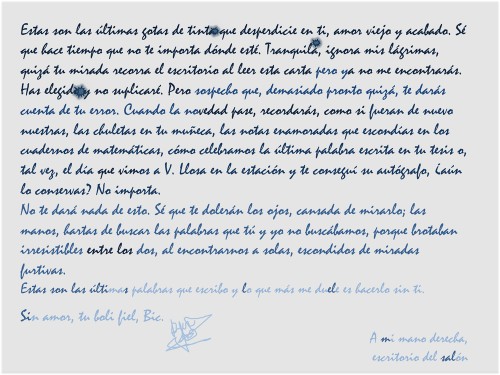 Estas son las últimas gotas de tinta que desperdicie en ti, amor viejo y acabado. Sé
que hace tiempo que no te importa dónde esté. Tranquila, ignora mis lágrimas,
quizá tu mirada recorra el escritorio al leer esta carta pero ya no me encontrarás.
Has elegido y no suplicaré. Pero sospecho que, demasiado pronto quizá, te darás
cuenta de tu error. Cuando la novedad pase, recordarás, como si fueran de nuevo
nuestras, las chuletas en tu muñeca, las notas enamoradas que escondías en los
cuadernos de matemáticas, cómo celebramos la última palabra escrita en tu tesis o,
tal vez, el día que vimos a V. Llosa en la estación y te conseguí su autógrafo, ¿aún
lo conservas? No importa.
No te dará nada de esto. Sé que te dolerán los ojos, cansada de mirarlo; las
manos, hartas de buscar las palabras que tú y yo no buscábamos, porque brotaban
irresistibles entre los dos, al encontrarnos a solas, escondidos de miradas
furtivas.
Estas son las últimas palabras que escribo y lo que más me duele es hacerlo sin ti.
Sin amor, tu boli fiel, Bic.
A mi mano derecha,
escritorio del salón